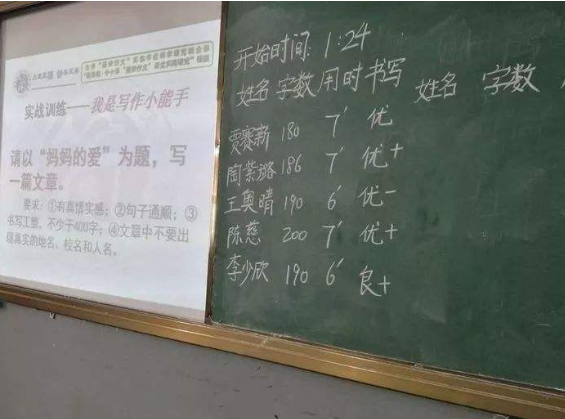 实战训练——我是写作小能手
请以“妈妈的爱”为题，写
一篇文章。
要求：①有真情实感；②句子通顺；③
书写工整，不少于400字；④文章中不要出
现真实的地名、校名和人名。
开始时间：1:24
姓名 字数 用时 书写 姓名 字数
贾赛新 180 7′ 优
陶紫璐 186 7′ 优+
王奥晴 190 6′ 优-
陈慈 200 7′ 优+
李少欣 190 6′ 良+